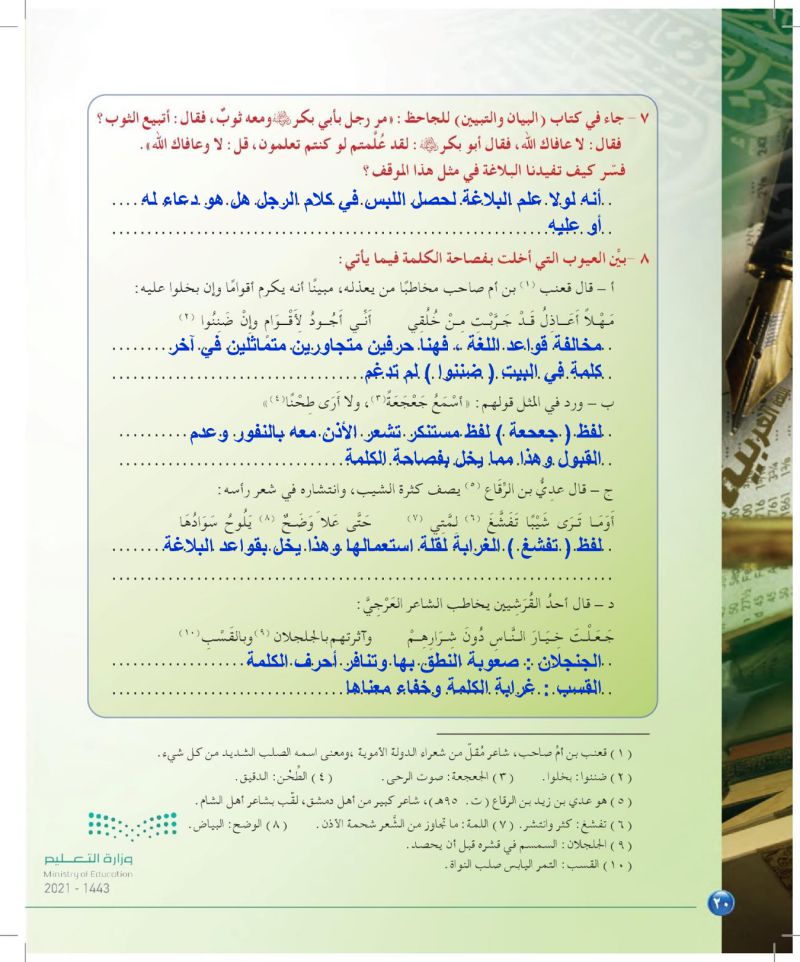 ٧ - جاء في كتاب (البيان والتبيين) للجاحظ: «مر رجل بأبي بكر ﷺ ومعه ثوبٌ، فقال: أتبيع الثوب؟
فقال: لا عافاك الله، فقال أبو بكر ﷺ: لقد عُلِّمتم لو كنتم تعلمون، قل: لا وعافاك الله».
فسّر كيف تفيدنا البلاغة في مثل هذا الموقف؟
أنه لولا علم البلاغة لحصل اللبس في كلام الرجل هل هو دعاء له
أو عليه
٨ - بيِّن العيوب التي أخلت بفصاحة الكلمة فيما يأتي:
أ - قال قعنب (١) بن أم صاحب مخاطبًا من يعذله، مبينًا أنه يكرم أقوامًا وإن بخلوا عليه:
مَهْلاً أَعَاذِلُ قَدْ جَرَّبْتِ مِنْ خُلُقِي أَنِّي أَجُودُ لِأَقْوَامٍ وإِنْ ضَنِنُوا (٢)
مخالفة قواعد اللغة ، فهنا حرفين متجاورين متماثلين في آخر
كلمة في البيت ( ضننوا ) لم تدغم
ب - ورد في المثل قولهم: «أسْمَعُ جَعْجَعَةً(٣)، ولا أَرَى طِحْنًا(٤)»
لفظ ( جعجعة ) لفظ مستنكر تشعر الأذن معه بالنفور وعدم
القبول وهذا مما يخل بفصاحة الكلمة
ج - قال عديُّ بن الرِّقاع (٥) يصف كثرة الشيب، وانتشاره في شعر رأسه:
أَوَمَا تَرَى شَيْبًا تَفَشَّغَ (٦) لِمَّتِي (٧) حَتَّى عَلاَ وَضَحٌ (٨) يَلُوحُ سَوَادُهَا
لفظ ( تفشغ ) الغرابة لقلة استعمالها وهذا يخل بقواعد البلاغة
د - قال أحدُ القُرَشيين يخاطب الشاعر العَرْجيَّ:
جَعَلْتَ خِيَارَ النَّاسِ دُونَ شِرَارِهِمْ وآثرتهم بالجلجلان (٩) وبالقَسْبِ(١٠)
الجنجلان : صعوبة النطق بها وتنافر أحرف الكلمة
القسب : غرابة الكلمة وخفاء معناها
(١) قعنب بن أمُ صاحب، شاعر مُقلّ من شعراء الدولة الأموية، ومعنى اسمه الصلب الشديد من كل شيء.
(٢) ضننوا: بخلوا. (٣) الجعجعة: صوت الرحى. (٤) الطِّحْن: الدقيق.
(٥) هو عدي بن زيد بن الرقاع (ت. ٩٥هـ)، شاعر كبير من أهل دمشق، لقّب بشاعر أهل الشام.
(٦) تفشغ: كثر وانتشر. (٧) اللمة: ما تجاوز من الشَّعر شحمة الأذن. (٨) الوضح: البياض.
(٩) الجلجلان: السمسم في قشره قبل أن يحصد.
(١٠) القسب: التمر اليابس صلب النواة.
وزارة التعليم
Ministry of Education
2021 - 1443
٢٠